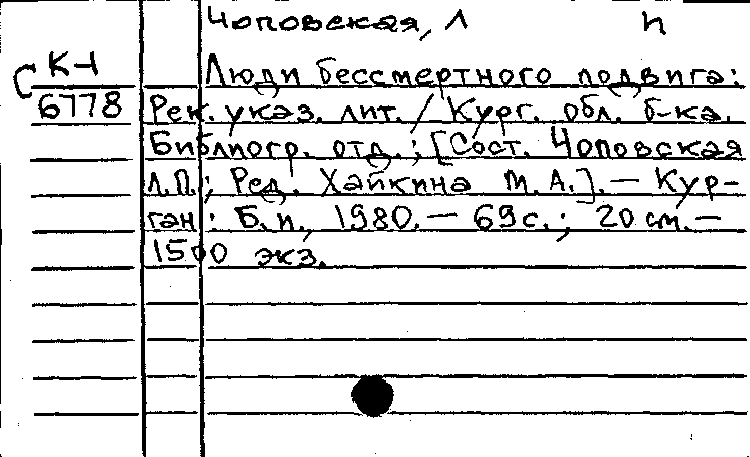 Чоповская, Л П
С К-1
Люди бессмертного подвига:
6778 Рек. указ. лит. / Кург. обл. б-ка.
Библиогр. отд.; [Сост. Чоповская
Л.П.; Ред. Хайкина М.А.]. — Кур-
ган: Б.и., 1980. — 69 с.; 20 см. —
1500 экз.